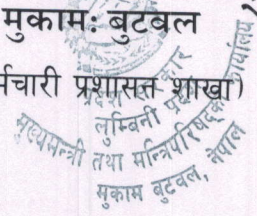 मुकाम: बुटवल
र्मचारी प्रशासन शाखा)
लुम्बिनी प्रदेश
मुख्यमन्त्री तथा मन्त्रिपरिषद्को कार्यालय
मुकाम बुटवल, नेपाल